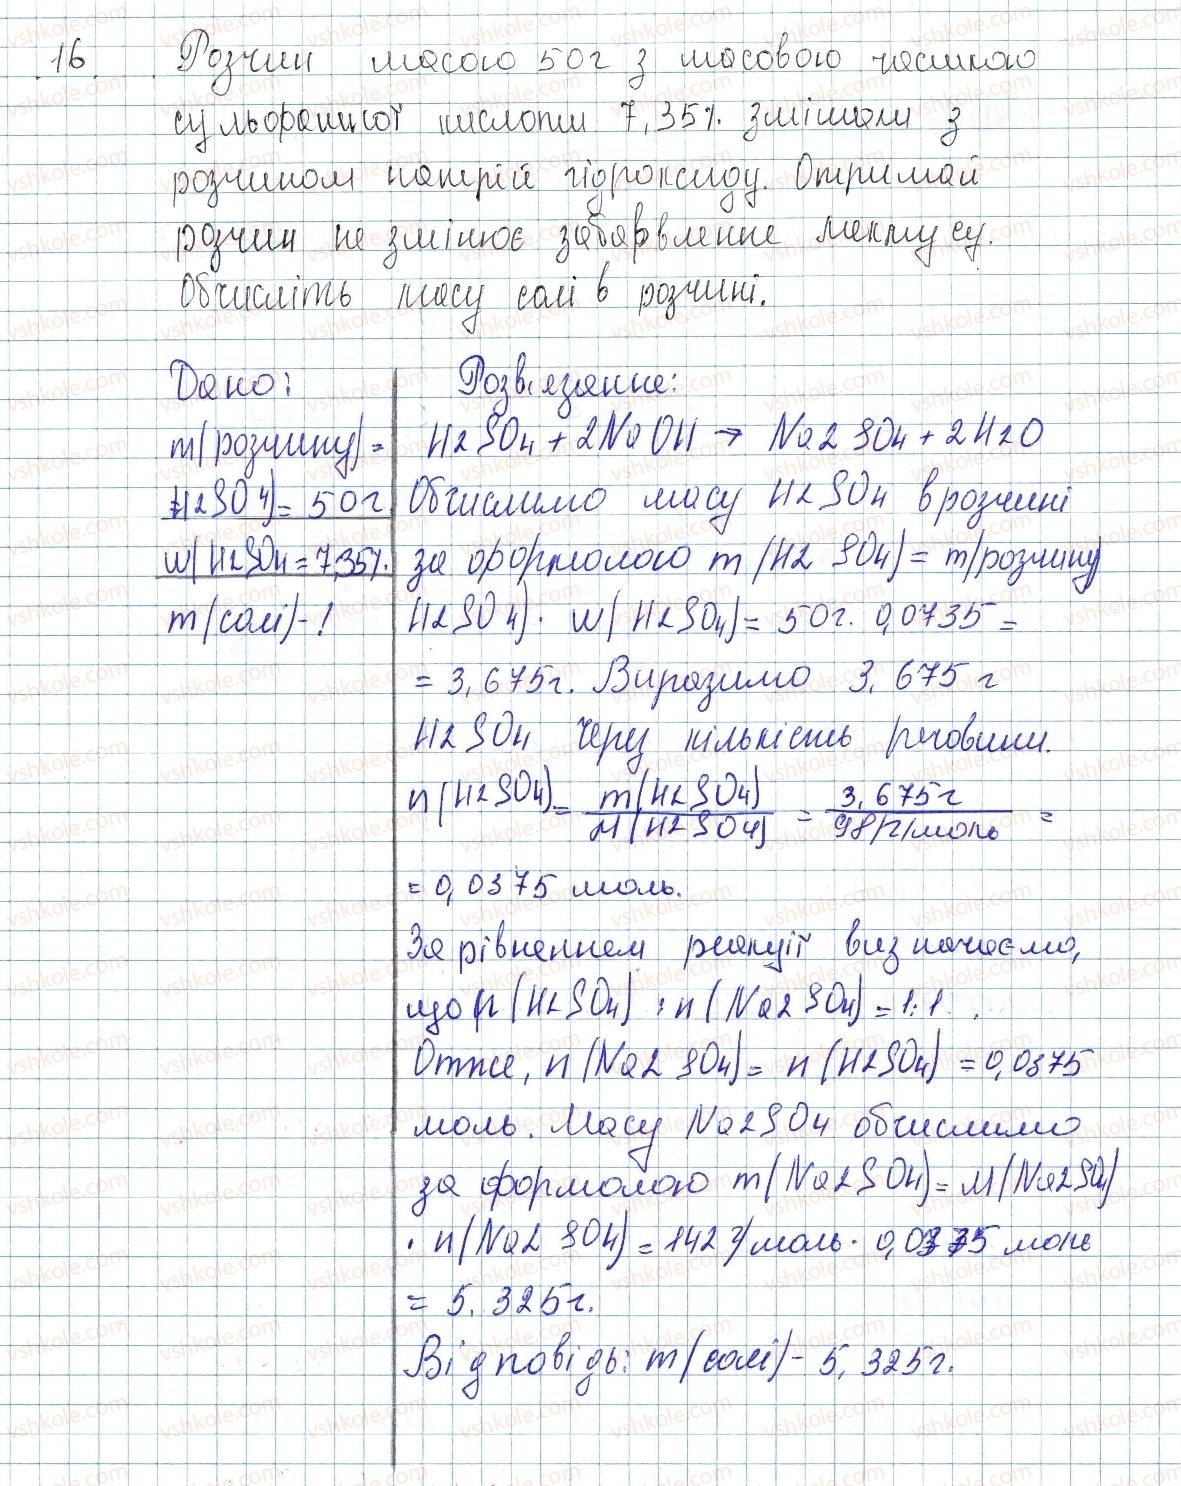 16. Розчин масою 50г з масовою часткою
сульфатної кислоти 7,35%. змішали з
розчином натрій гідроксиду. Отримай
розчин не змінює забарвлення лакмусу.
Обчисліть масу солі в розчині.
Дано:
m(розчину)=
H2SO4)= 50г
w(H2SO4=7,35%.
m(солі)-!
Розв'язання:
H2SO4 + 2NaOH → Na2SO4 + 2H2O
Обчислимо масу H2SO4 в розчині
за формолою m(H2SO4)= m(розчину
H2SO4)· w(H2SO4)= 50г· 0,0735 =
= 3,675г. Виразимо 3,675 г
H2SO4 через кількість речовини.
n(H2SO4)= m(H2SO4) / M(H2SO4) = 3,675г / 98г/моль =
= 0,0375 моль.
За рівненнем реакції визначаємо,
що n(H2SO4) : n(Na2SO4)=1:1.
Отже, n(Na2SO4)= n(H2SO4) =0,0375
моль. Масу Na2SO4 обчислимо
за формолою m(Na2SO4)= M(Na2SO4)
· n(Na2SO4)=142 г/моль· 0,0375 моль
= 5,325г.
Відповідь: m(солі)- 5,325г.